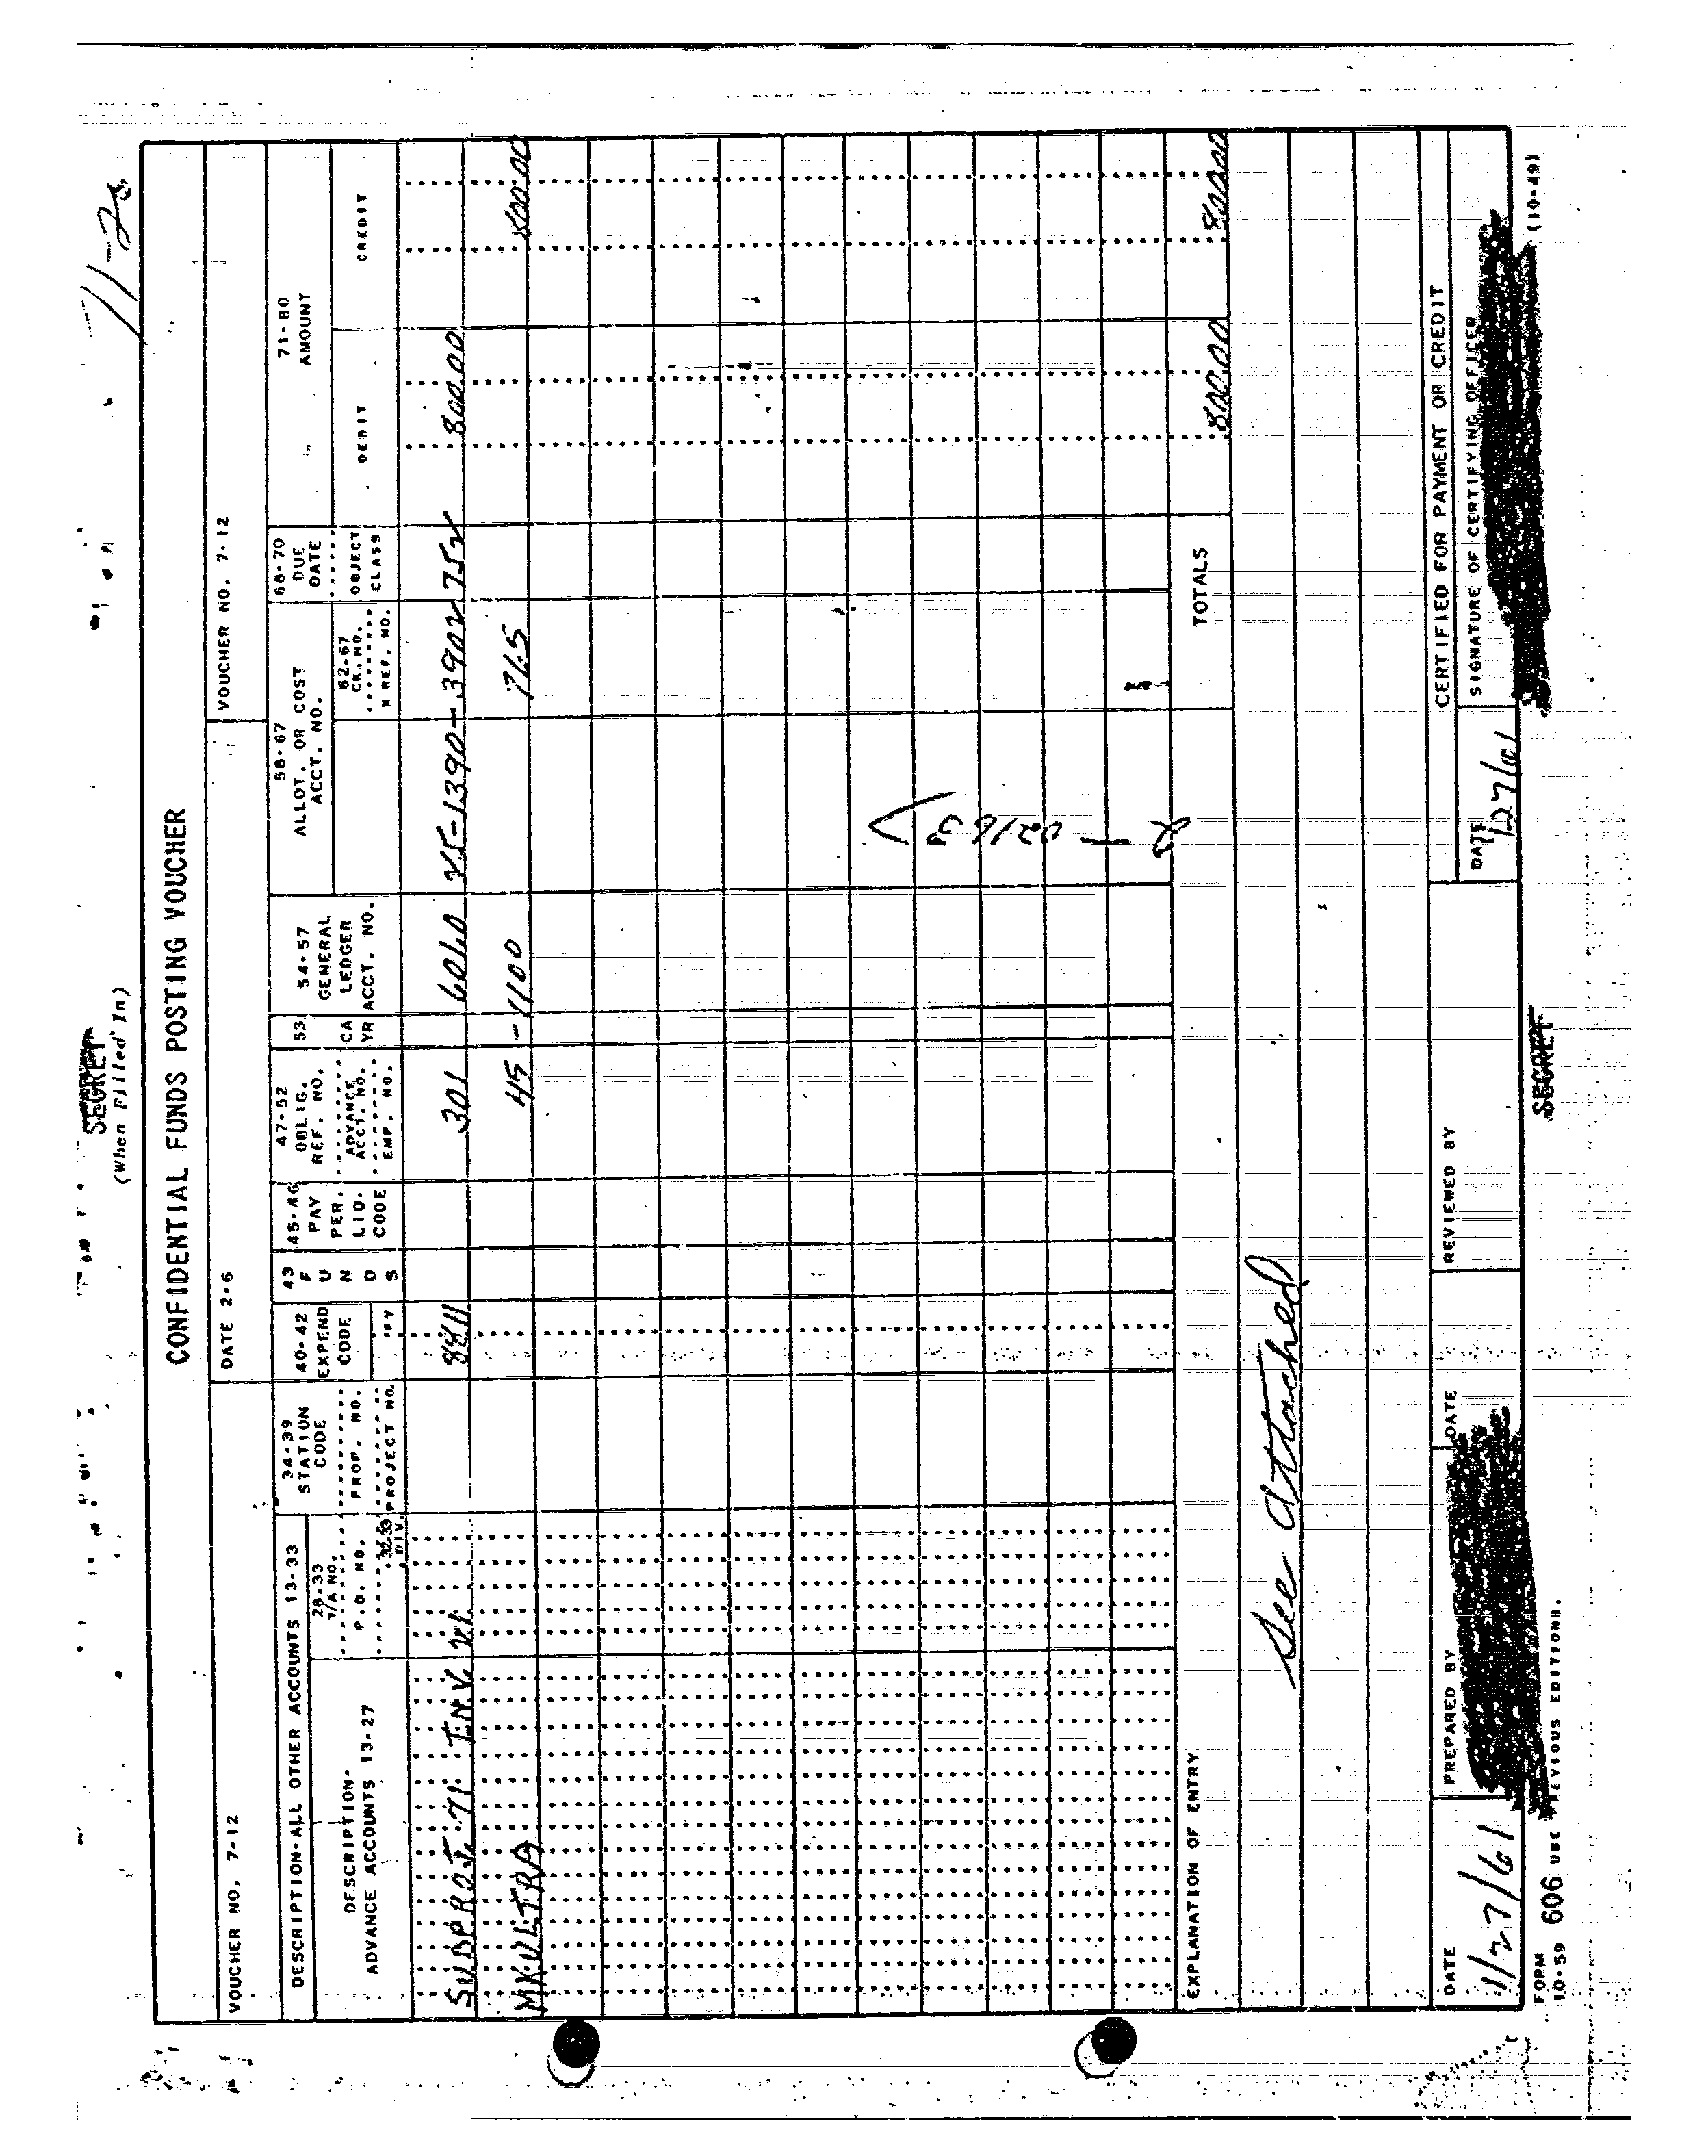 71-20
SECRET
(When Filled In)
CONFIDENTIAL FUNDS POSTING VOUCHER
VOUCHER NO. 7-12
DATE 2-6
VOUCHER NO. 7-12
DESCRIPTION-ALL OTHER ACCOUNTS 13-33
DESCRIPTION-
ADVANCE ACCOUNTS 13-27
28-33
T/A NO.
P.O. NO.
32-33
DIV.
34-39
STATION
CODE
PROP. NO.
PROJECT NO.
40-42
EXPEND
CODE
FY
43
F
U
N
D
S
45-46
PAY
PER.
LIQ.
CODE
47-52
OBLIG.
REF. NO.
ADVANCE
ACCT. NO.
EMP. NO.
53
CA
YR
54-57
GENERAL
LEDGER
ACCT. NO.
58-67
ALLOT. OR COST
ACCT. NO.
62-67
CK. NO.
X REF. NO.
68-70
DUE
DATE
OBJECT
CLASS
71-80
AMOUNT
DEBIT
CREDIT
SUBPROJ. 71 INV. 21 8811 301 601.0 25-1390-3902 752 800.00
MKULTRA 45 -1100 71.5 800.00
2 — 02163
EXPLANATION OF ENTRY
TOTALS
800.00 800.00
See attached
CERTIFIED FOR PAYMENT OR CREDIT
DATE
11/27/61
PREPARED BY
DATE
REVIEWED BY
DATE
SIGNATURE OF CERTIFYING OFFICER
FORM
10-59 606 USE PREVIOUS EDITIONS.
SECRET
(10-49)